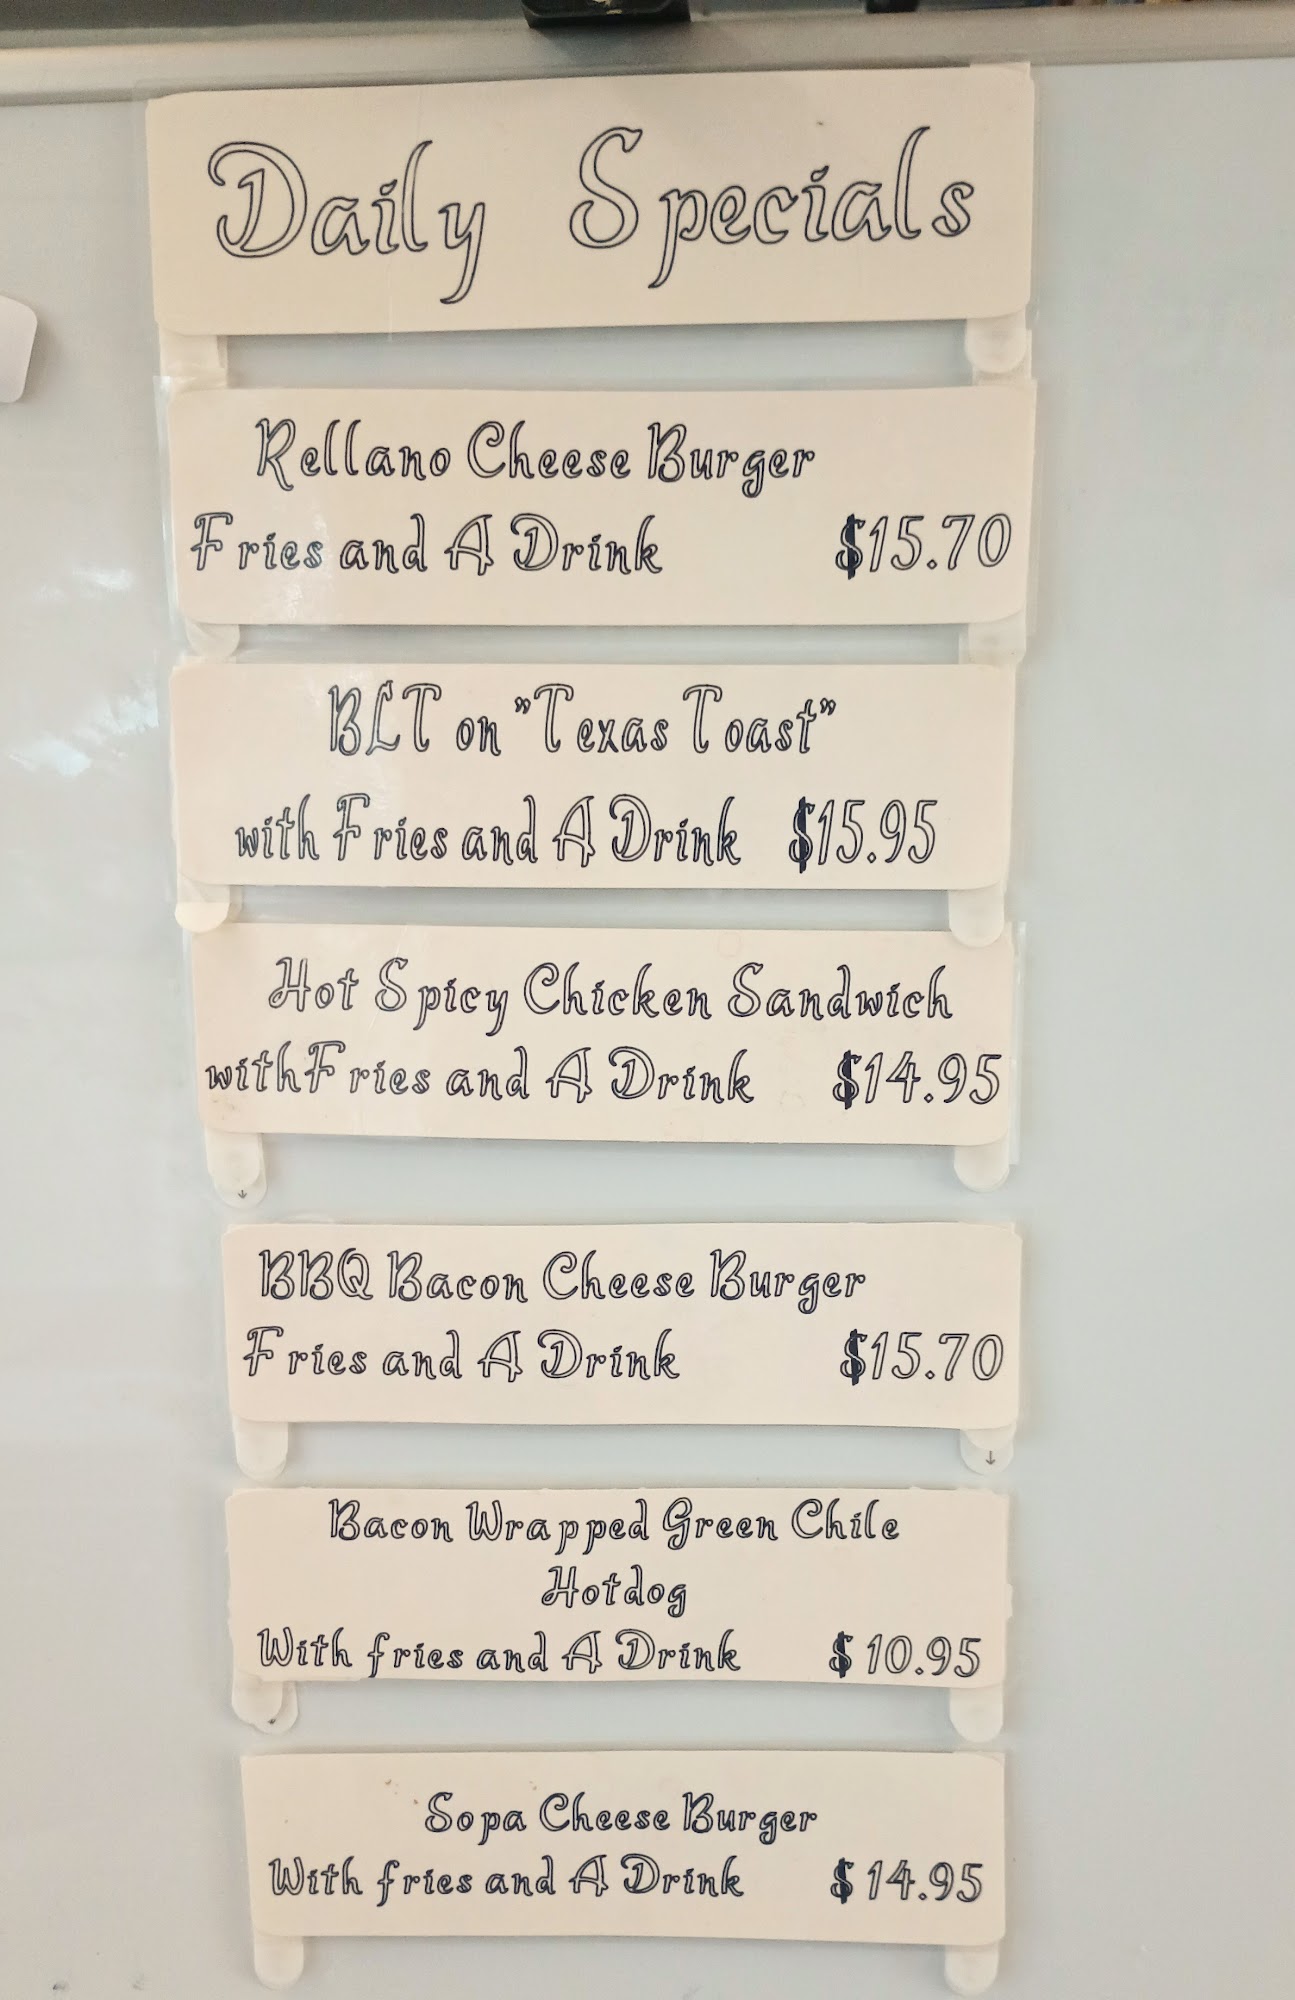 Daily Specials
Rellano Cheese Burger
Fries and A Drink $15.70
BLT on "Texas Toast"
with Fries and A Drink $15.95
Hot Spicy Chicken Sandwich
with Fries and A Drink $14.95
BBQ Bacon Cheese Burger
Fries and A Drink $15.70
Bacon Wrapped Green Chile
Hotdog
With fries and A Drink $ 10.95
Sopa Cheese Burger
With fries and A Drink $ 14.95